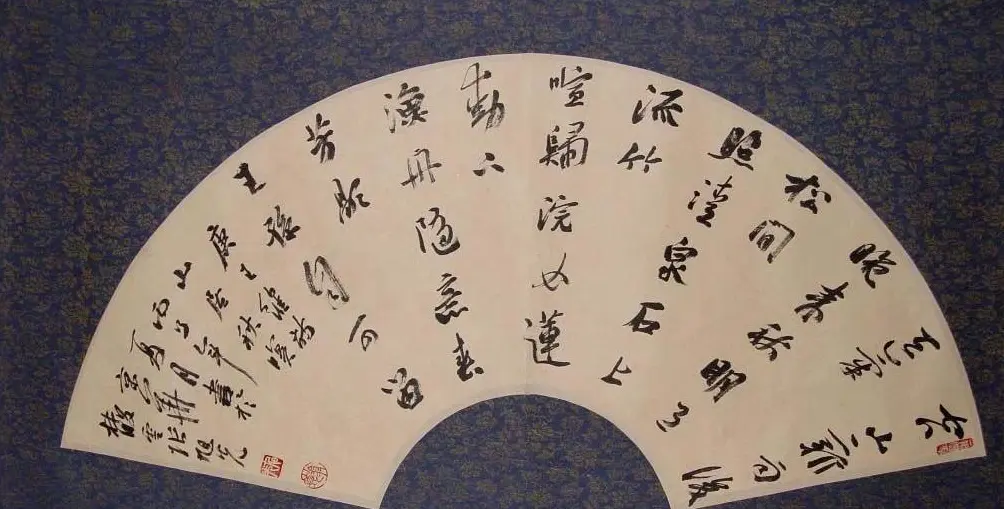 空山新雨後
天氣
晚來秋明月
松間
照清泉石上
流竹
喧歸浣女蓮
動下
漁舟隨意春
芳歇
王孫自可留
唐王維詩
山居秋暝
年書於
張旭光